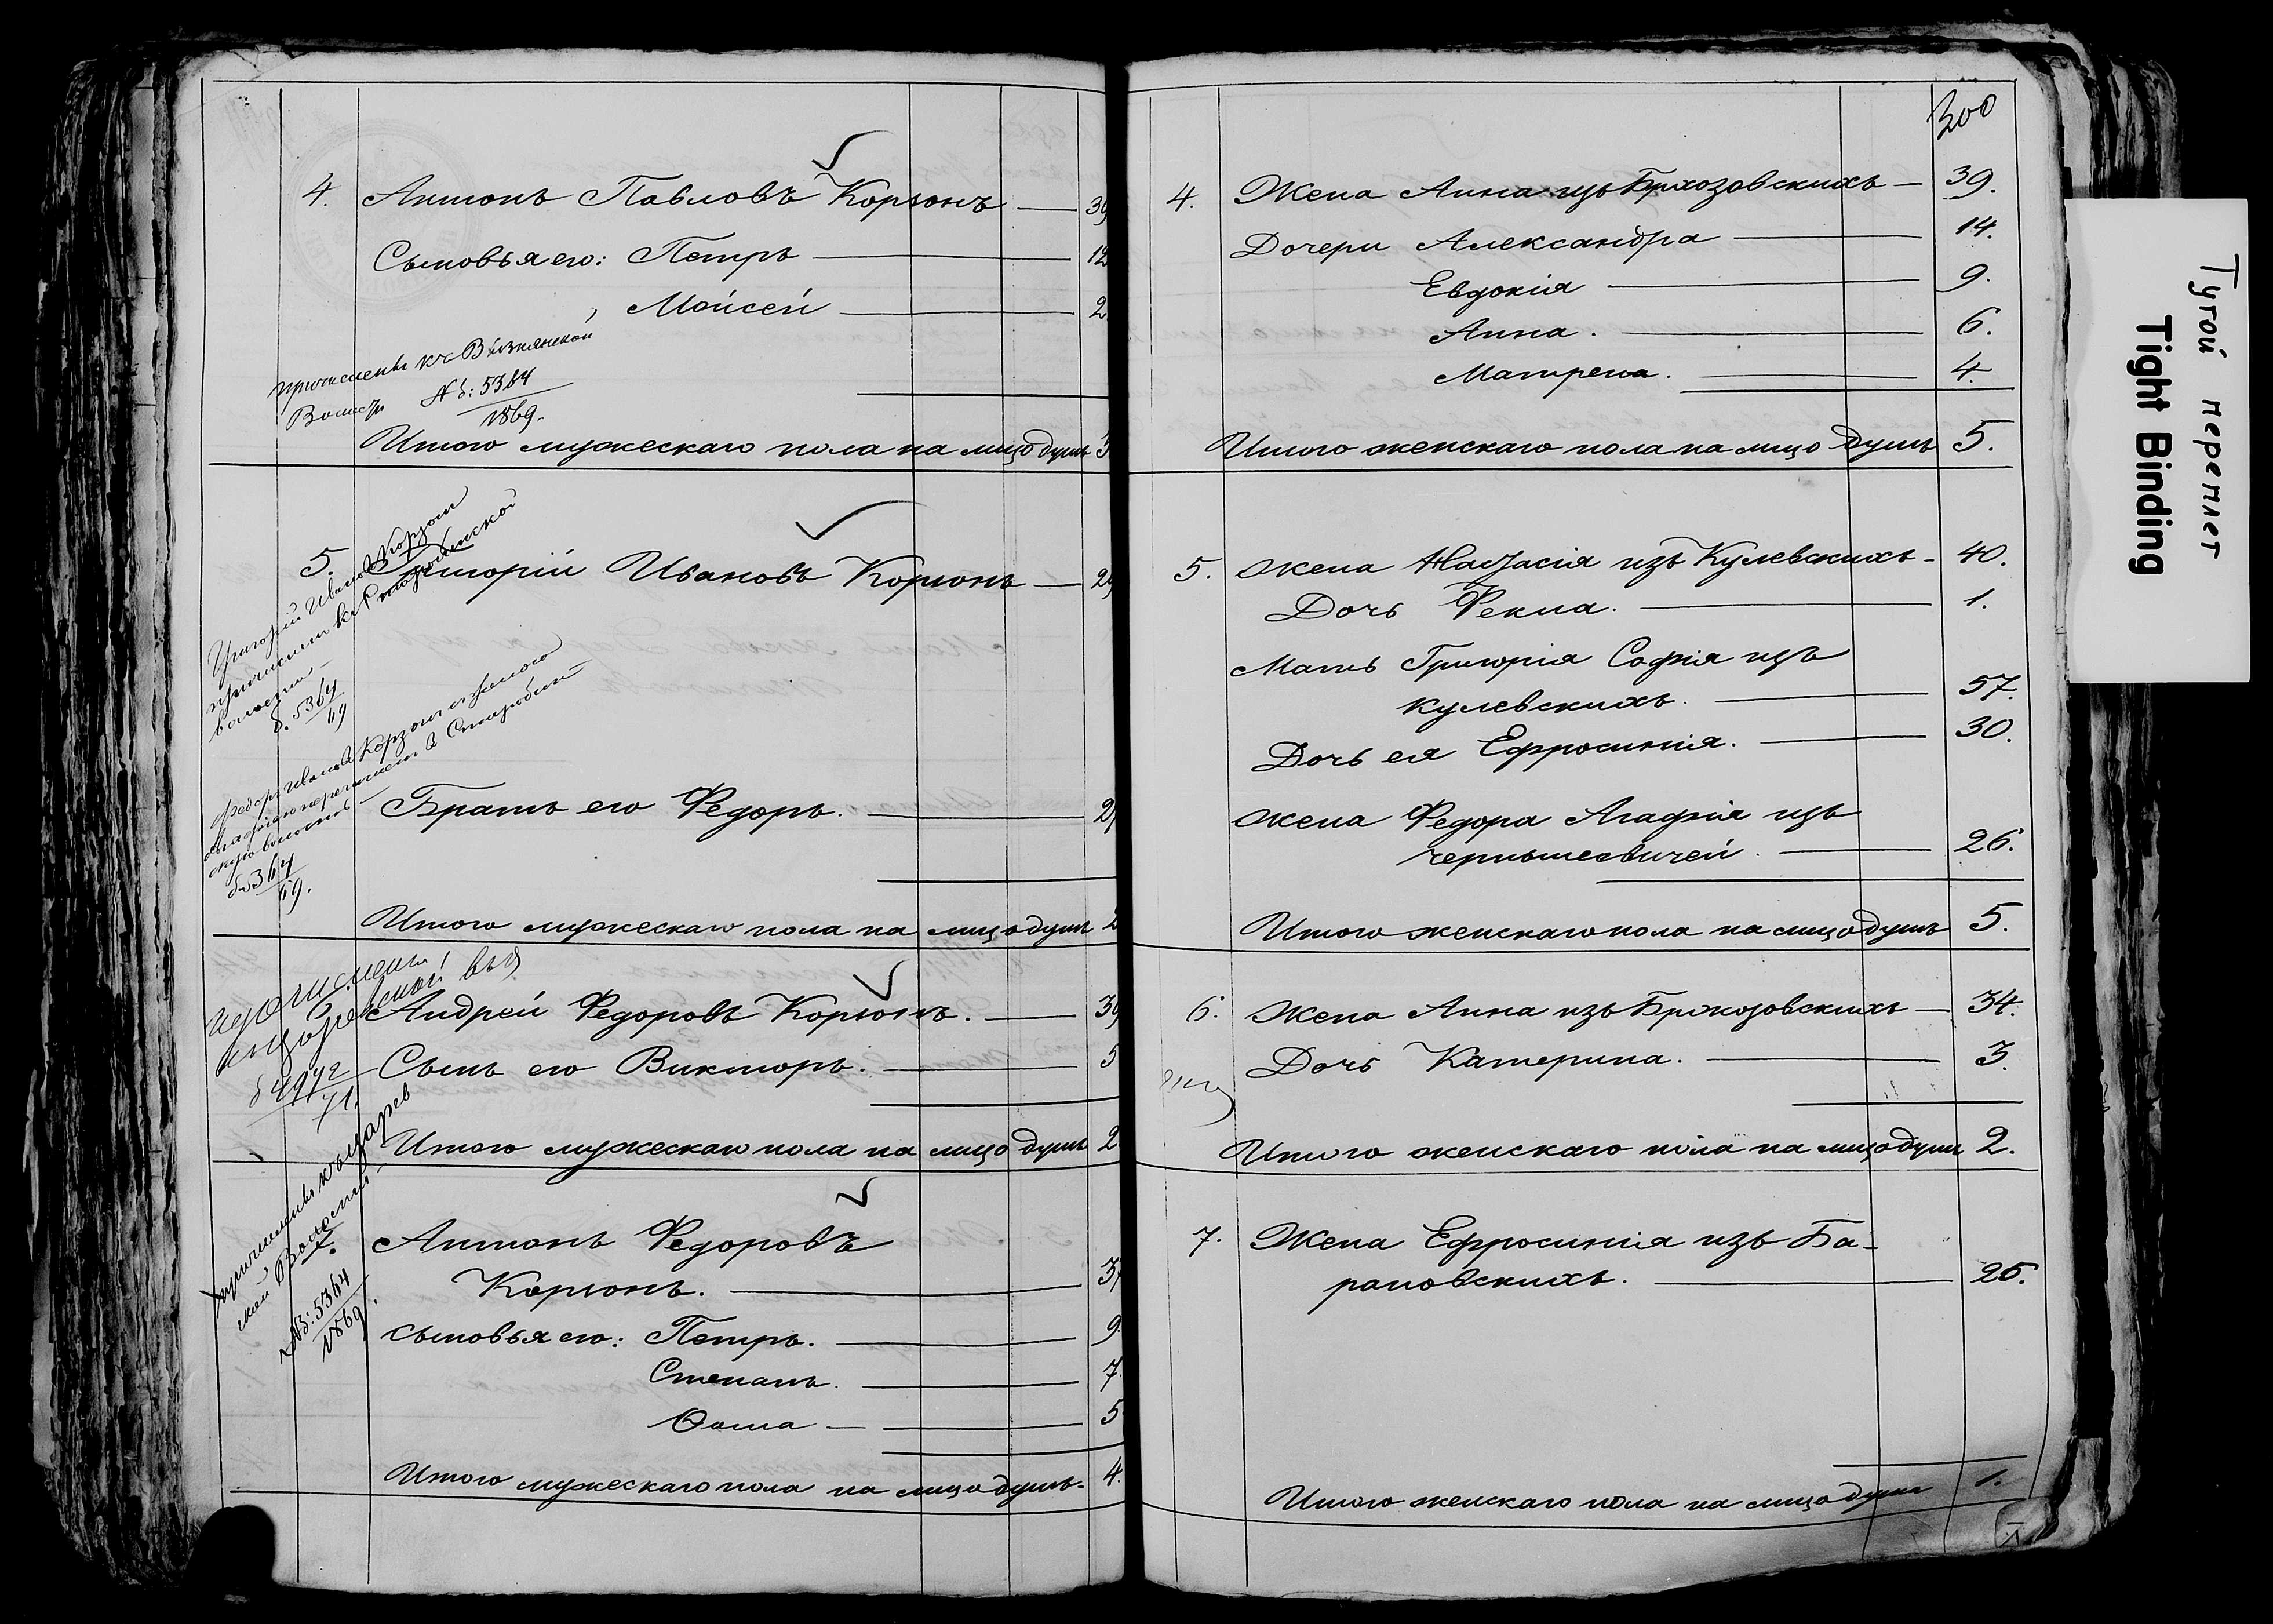 4. Антонъ Павловъ Корзонъ — 39
Сыновья его: Петръ — 12
Мойсей — 2
причислены къ
Волости № 5364
1869.
Итого мужескаго пола на лицо душъ 3
5. Григорій Ивановъ Корзонъ — 29
Григорій Ивановъ Корзон
причислен къ
волости
5364
69
Федоръ Ивановъ Корзонъ с женою
5364
69.
Братъ его Федоръ. — 2
Итого мужескаго пола на лицо душъ 2
6. Андрей Федоровъ Корзонъ. — 39
Сынъ его Викторъ. — 5
71.
Итого мужескаго пола на лицо душъ 2
причислены къ Цырев
ской Волости
№: 5364
1869.
7. Антонъ Федоровъ
Корзонъ. — 37
Сыновья его: Петръ. — 9.
Степанъ. — 7.
Ѳома — 5
Итого мужескаго пола на лицо душъ. 4.
300
4. Жена Анна изъ Бржозовскихъ — 39.
Дочери Александра — 14.
Евдокія — 9.
Анна. — 6.
Матрена. — 4.
Итого женскаго пола на лицо душъ 5.
5. Жена Настасія изъ Кулевскихъ — 40.
Дочь Фекла. — 1.
Мать Григорія Софія изъ
Кулевскихъ. — 57.
Дочь ея Ефросинія. — 30.
Жена Федора Агафія изъ
Чернышевичей. — 26.
Итого женскаго пола на лицо душъ 5.
6. Жена Анна изъ Бржозовскихъ — 34.
Дочь Катерина. — 3.
Итого женскаго пола на лицо душъ 2.
7. Жена Ефросинія изъ Ба-
рановскихъ. — 25.
Итого женскаго пола на лицо душъ 1.
Тугой переплет
Tight Binding